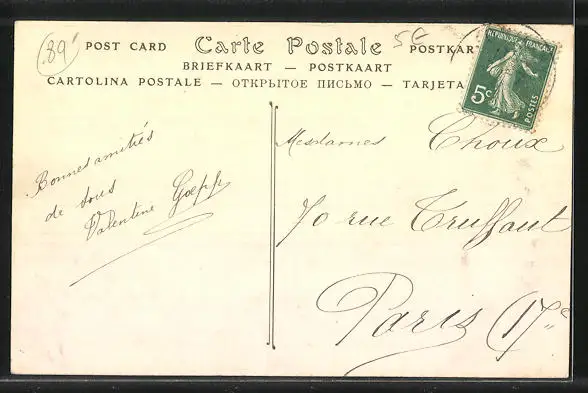 89
POST CARD Carte Postale POSTKAR
BRIEFKAART — POSTKAART
CARTOLINA POSTALE — ОТКРЫТОЕ ПИСЬМО — TARJETA
5€
REPUBLIQUE FRANÇAISE
5c
POSTES
Bonnes amitiés
de tous
Valentine Goepp
Mesdames Choux
70 rue Truffaut
Paris (17e